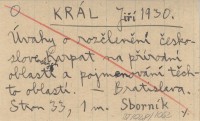 KRÁL Jiří 1930.
Úvahy o rozčlenění česko-
sloven. Karpat na přírodní
oblasti a pojmenování těch-
to oblastí. — Bratislava.
Stran 33, 1 m. Sborník